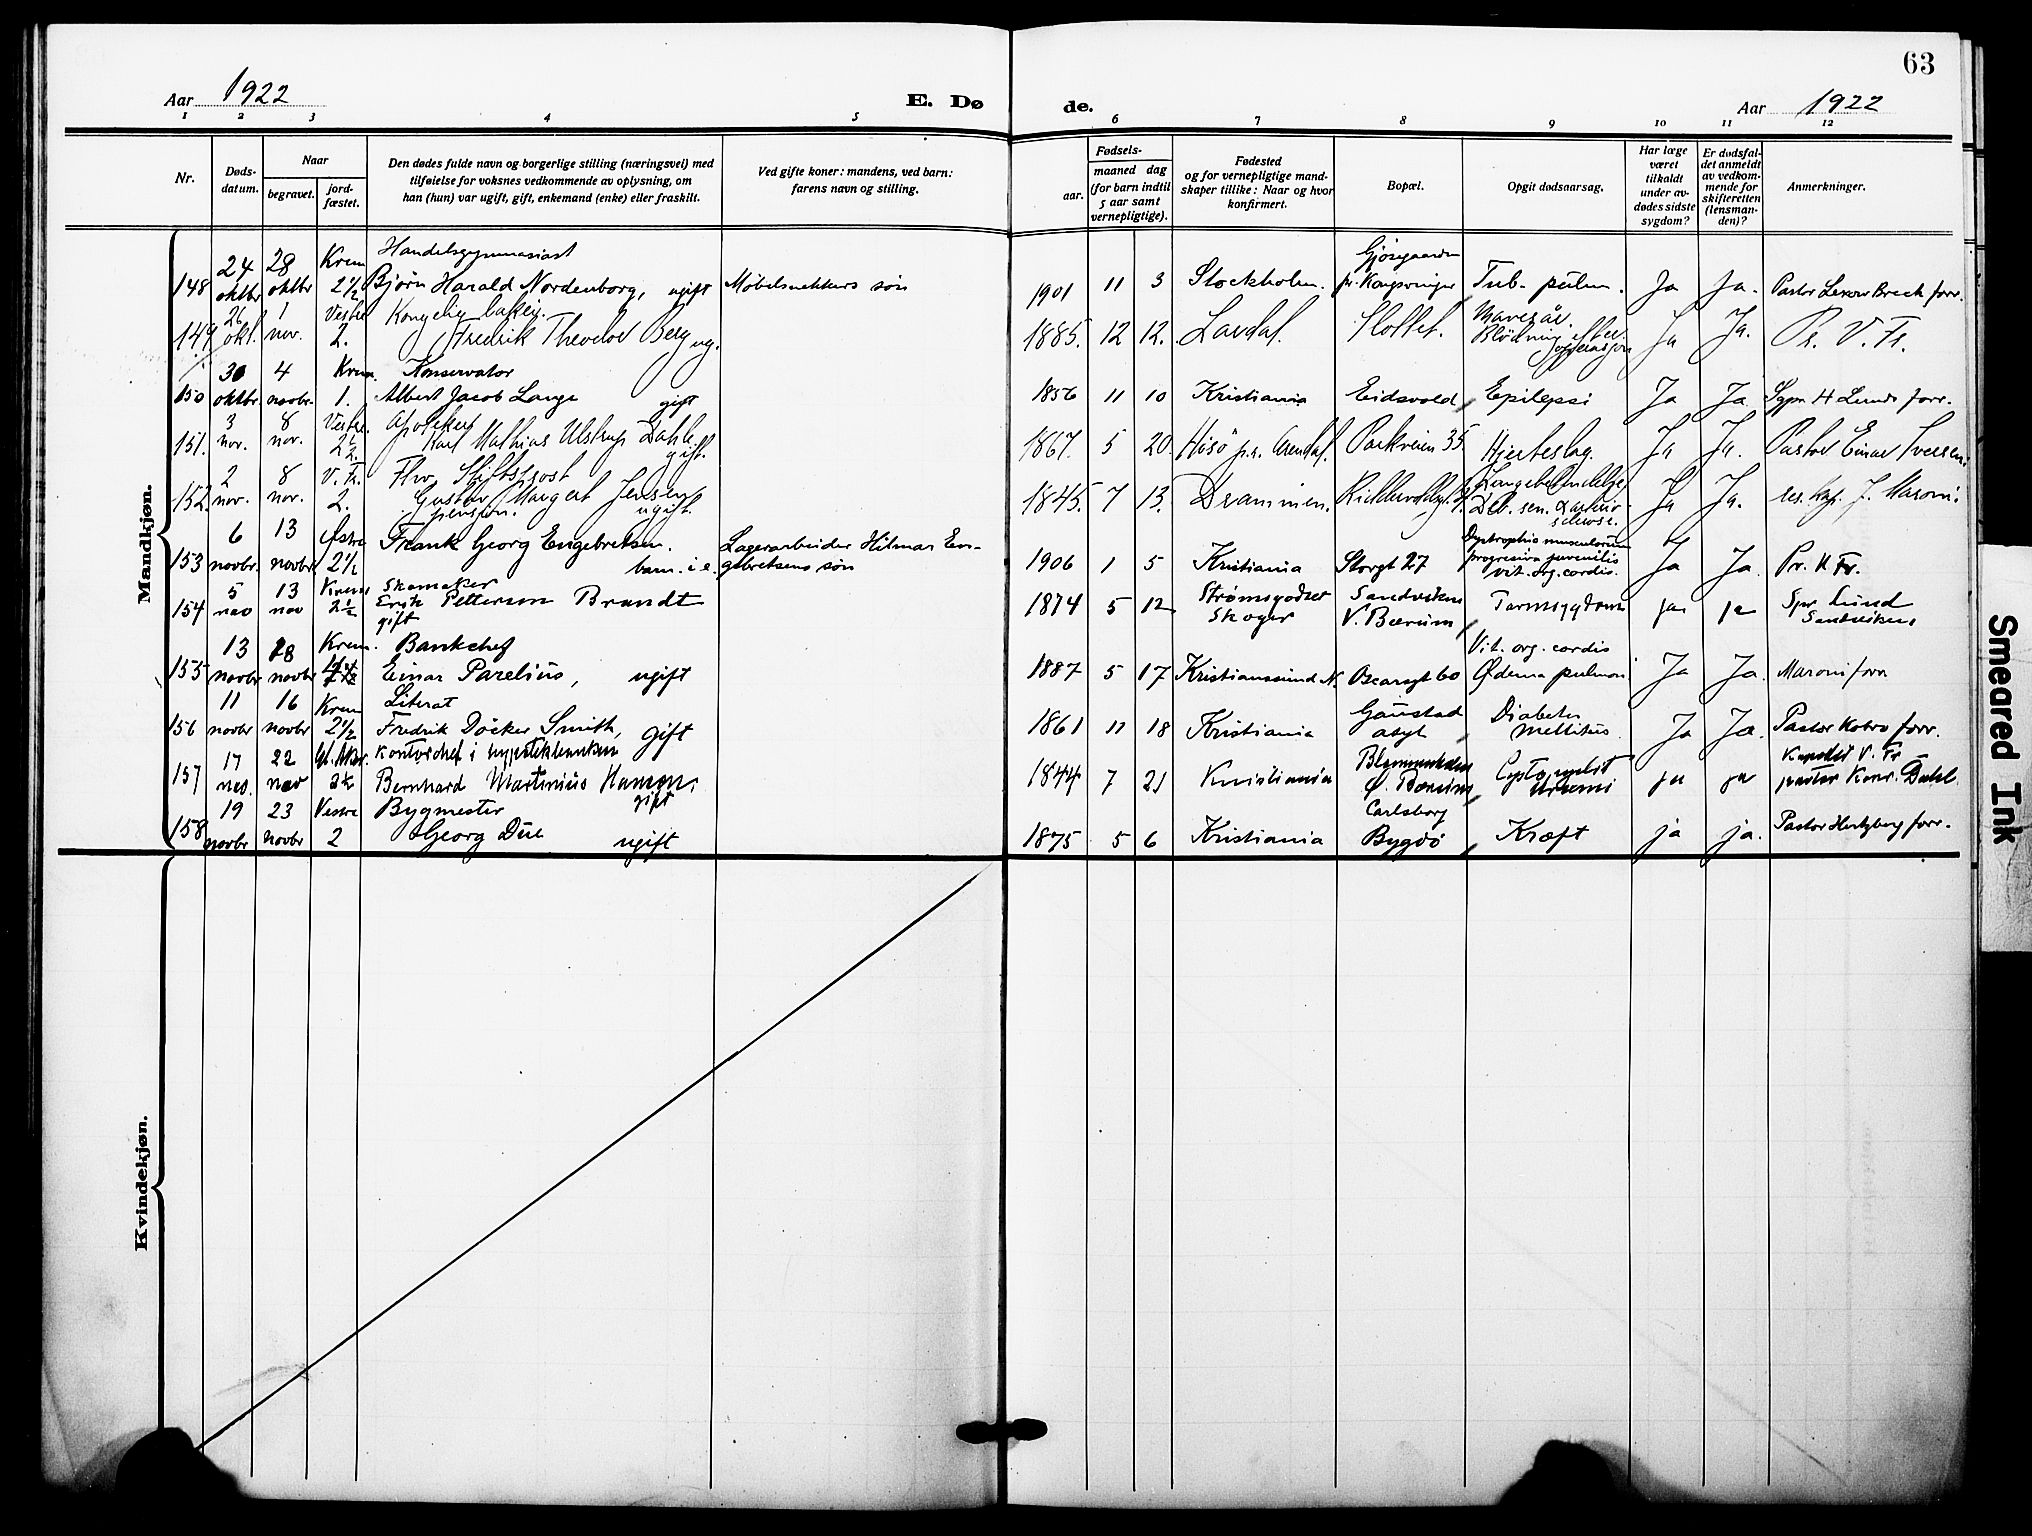 63
Aar 1922
E. Dø
de.
Aar 1922
1 2 3 4 5 6 7 8 9 10 11 12
Nr.
Døds-
datum.
Naar
begravet.
jord-
fæstet.
Den dødes fulde navn og borgerlige stilling (næringsvei) med
tilføielse for voksnes vedkommende av oplysning, om
han (hun) var ugift, gift, enkemand (enke) eller fraskilt.
Ved gifte koner: mandens, ved barn:
farens navn og stilling.
Fødsels-
aar.
maaned dag
(for barn indtil
5 aar samt
vernepligtige).
Fødested
og for vernepligtige mand-
skaper tillike: Naar og hvor
konfirmert.
Bopæl.
Opgit dødsaarsag.
Har læge
været
tilkaldt
under av-
dødes sidste
sygdom?
Er dødsfal-
det anmeldt
av vedkom-
mende for
skifteretten
(lensman-
den)?
Anmerkninger.
Mandkjøn.
24 28 Krem Handelsgymnasiast Gjøsegaarden
148 oktbr oktbr 2½ Bjørn Harald Nordenborg, ugift Møbelsnekkers søn 1901 11 3 Stockholm. pr. Kongsvinger Tub. pulm. Ja Ja. Pastor Lexow Brech forr.
26 1 Vestre Kongelig lakei. Mavesår.
149 okt. nov. 2. Fredrik Theodor Berg ug. 1885. 12 12. Lardal. Slottet. Blödning efter operasjon Ja Ja. Pr. V. Fr.
30 4 Krem. Konservator
150 oktbr novbr. 1. Albert Jacob Lange gift 1856 11 10 Kristiania Eidsvold Epilepsi Ja Ja Sgpr H Lunds forr.
3 8 Vestre. Apotheker
151. nov. nov. 2½ Karl Mathias Ulstrup Dahl. gift. 1867. 5 20. Hisö p.r. Arendal. Parkveien 35 Hjerteslag. Ja Ja. Pastor Einar Iversen.
2 8 V. Fr. Fhv. Stiftsprost Lungebetendelse
152. nov. nov. 2. Gustav Margert Jensen pensjon. ugift. 1845. 7 13. Drammen. Deb. sen. Arterio-
sclerose. Ja Ja. res. kap. J. Maroni.
6 13 Østre Frank Georg Engebretsen. Lagerarbeider Hilmar En- Dystrophia musculorum
153 novbr. novbr 2½ barn. i. e. gebretsens søn 1906 1 5 Kristiania Storgt 27 progresiva juvenilis
vit. org. cordis. Ja Ja. Pr. V Fr.
5 13 Krem Skomaker Strømsgodset Sandviken
154 nov nov 2½ Erik Petterson Brandt 1874 5 12 Skoger V. Bærum Tarmsygdom ja ja Spr Lund
gift Sandviken
13 28 Krem. Bankchef Vit. org. cordis
155 novbr novbr Einar Parelius, ugift 1887 5 17 Kristianssund N. Oscarsgt 60 Ødema pulmon Ja Ja. Maroni forr
11 16 Krem Literat Gaustad Diabetes
156 novbr novbr 2½ Fredrik Döcker Smith, gift 1861 11 18 Kristiania asyl Mellitus. Ja Ja. Pastor Kobro forr.
17 22 Gl. Aker. Kontorchef i hypotekbanken Blommenholm Kapellet V. Fr
157 nov. nov 2½ Bernhard Martinius Hansen. gift 1844 7 21 Kristiania Ø. Bærum Uremi ja ja pastor Konr. Dahl.
19 23 Vestre Bygmester Carlsborg
158 novbr novbr 2 Georg Düe ugift 1875 5 6 Kristiania Bygdö Kræft ja ja. Pastor Hertzberg forr.
Kvindekjøn.
Smeared Ink